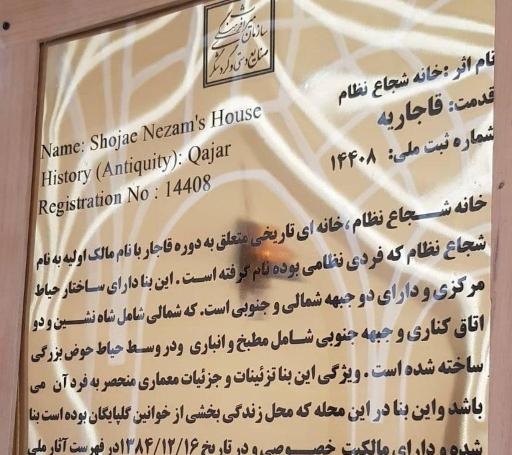 سازمان میراث فرهنگی
صنایع دستی و گردشگری
نام اثر :خانه شجاع نظام
قدمت: قاجاریه
شماره ثبت ملی: ۱۴۴۰۸
Name: Shojae Nezam's House
History (Antiquity): Qajar
Registration No : 14408
خانه شـــجاع نظام ،خانه ای تاریخی متعلق به دوره قاجار با نام مالک اولیه به نام
شجاع نظام که فردی نظامی بوده نام گرفته اســت . این بنا دارای ســاختار حیاط
مرکزی و دارای دو جبهه شمالی و جنوبی است. که شمالی شامل شاه نشــین و دو
اتاق کناری و جبهه جنوبی شــامل مطبخ و انباری ودر وسـط حیاط حوض بزرگی
ساخته شده است . ویژگی این بنا تزئینات و جزئیات معماری منحصر به فرد آن می
باشد واین بنا در این محله که محل زندگی بخشی از خوانین گلپایگان بوده است بنا
شده و دارای مالکیت خصــوصی و در تاریخ ۱۳۸۴/۱۲/۱۶در فهرست آثار ملی